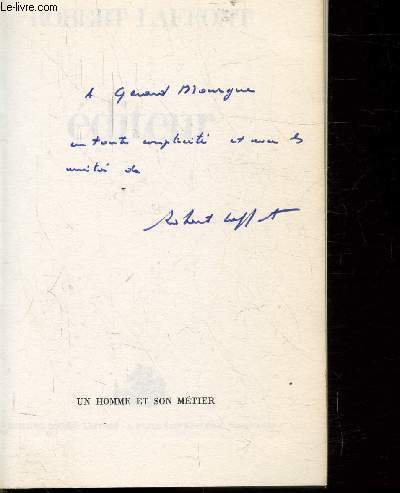 le-livre.com
ROBERT LAFFONT
éditeur
A Gérard Mourgue
en toute complicité et avec les
amitiés de
Robert Laffont
UN HOMME ET SON MÉTIER